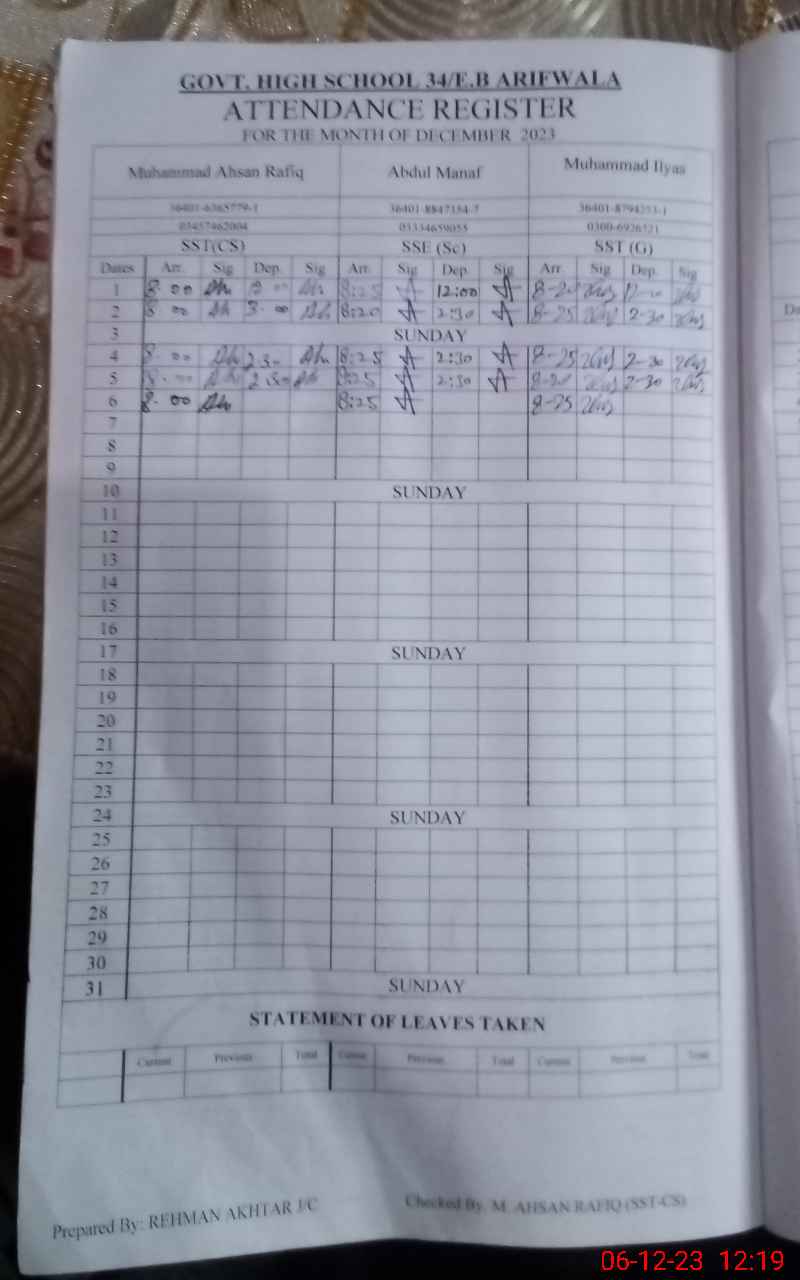 GOVT. HIGH SCHOOL 34/E.B ARIFWALA
ATTENDANCE REGISTER
FOR THE MONTH OF DECEMBER 2023
Muhammad Ahsan Rafiq Abdul Manaf Muhammad Ilyas
36401-6365779-1 36401-8847154-7
03457462004 03334659055 0300-6926521
SST(CS) SSE (Sc) SST (G)
Dates Arr. Sig Dep. Sig Arr. Sig Dep. Sig Arr. Sig Dep. Sig
1 8.00 8:25 12:00 8-20 12-00
2 8 00 8:20 2:30 8-25 2-30
3 SUNDAY
4 8.00 2 30 8:25 2:30 8-25 2-30
5 8.00 2.30 8:25 2:30 8-20 2-30
6 8.00 8:25 8-25
7
8
9
10 SUNDAY
11
12
13
14
15
16
17 SUNDAY
18
19
20
21
22
23
24 SUNDAY
25
26
27
28
29
30
31 SUNDAY
STATEMENT OF LEAVES TAKEN
Current Previous Total Current Previous Total Current Previous Total
Prepared By: REHMAN AKHTAR J/C Checked By. M. AHSAN RAFIQ (SST-CS)
06-12-23 12:19